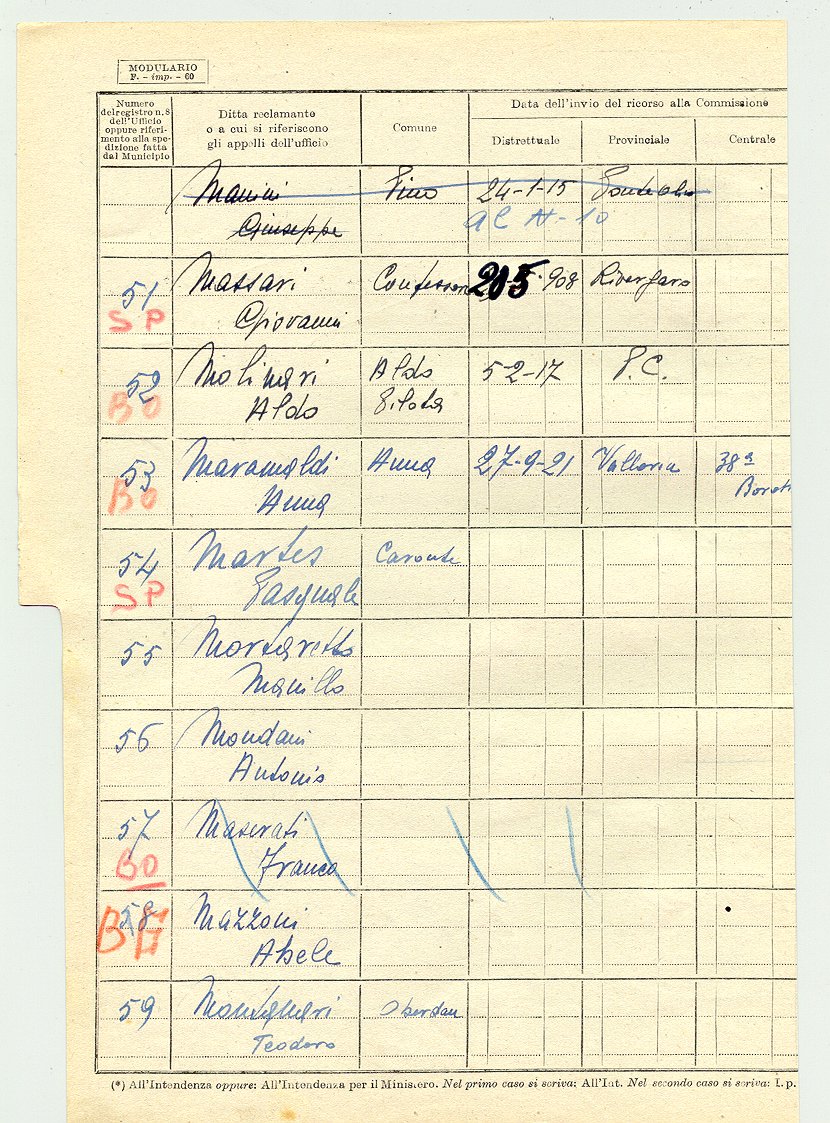 MODULARIO
F. - imp. - 60
Numero
del registro n. 8
dell'Ufficio
oppure riferi-
mento alla spe-
dizione fatta
dal Municipio
Ditta reclamante
o a cui si riferiscono
gli appelli dell'ufficio
Comune
Data dell'invio del ricorso alla Commissione
Distrettuale
Provinciale
Centrale
Manini Pino 24-1-15
Giuseppe
51 Massari 908 Rivergaro
SP Giovanni
52 Molinari Aldo 5-2-17 P.C.
BO Aldo Pilota
53 Maramaldi Anna 27-9-21 38ª
BO Anna
54 Martes Caronte
SP Pasquale
55 Mortaretto
Manillo
56 Mondani
Antonio
57 Maserati
BO Franco
58 Mazzoni
Abele
59 Montanari Oberdan
Teodoro
(*) All'Intendenza oppure: All'Intendenza per il Ministero. Nel primo caso si scriva: All'Int. Nel secondo caso si scriva: I. p.